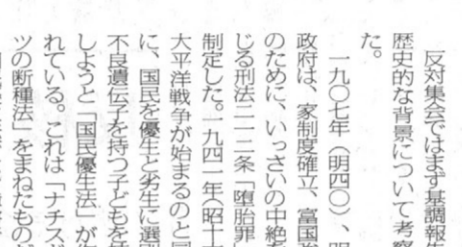 反対集会ではまず基調報
歴史的な背景について考察
た。
一九〇七年(明四〇)、明
政府は、家制度確立、富国強
のために、いっさいの中絶を
じる刑法二一二条「堕胎罪」
制定した。一九四一年(昭十
大平洋戦争が始まるのと同
に、国民を優生と劣生に選別
不良遺伝子を持つ子どもを
しようと「国民優生法」が
れている。これは「ナチスド
ツの断種法」をまねたもの